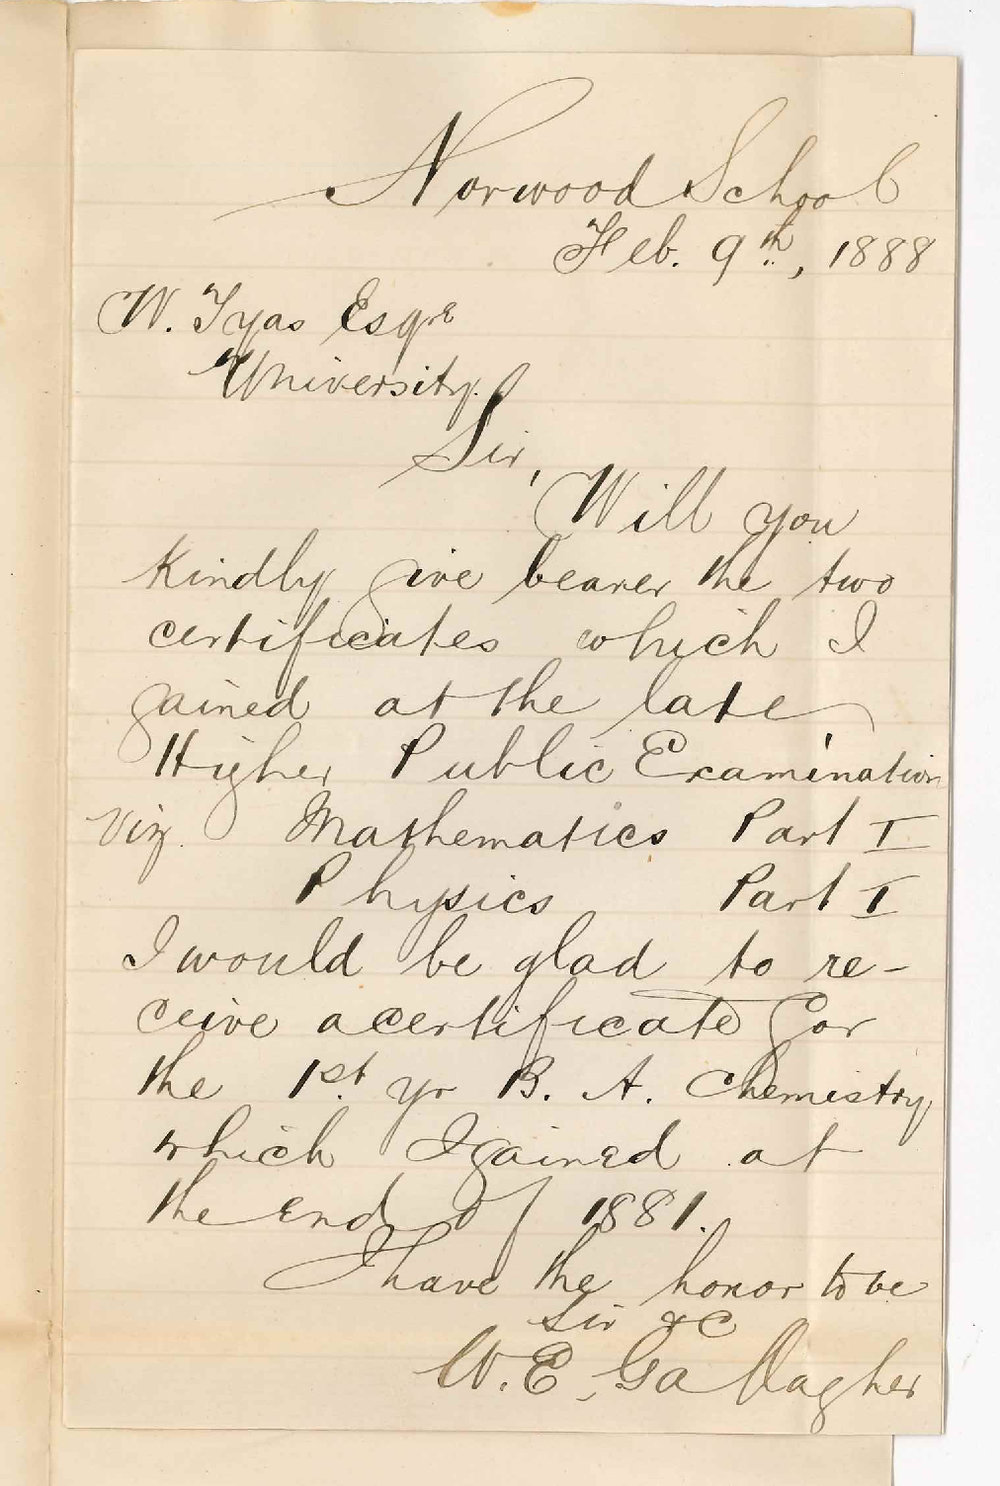 Norwood School
Feb. 9th, 1888
W. Tyas Esqre
University.
Sir,
Will you
Kindly give bearer the two
certificates which I
gained at the late
Higher Public Examination
viz. Mathematics Part I
Physics Part I
I would be glad to re-
ceive a certificate for
the 1st. yr B. A. Chemistry
which I gained at
the end of 1881.
I have the honor to be
Sir &c
W. E. Gallagher